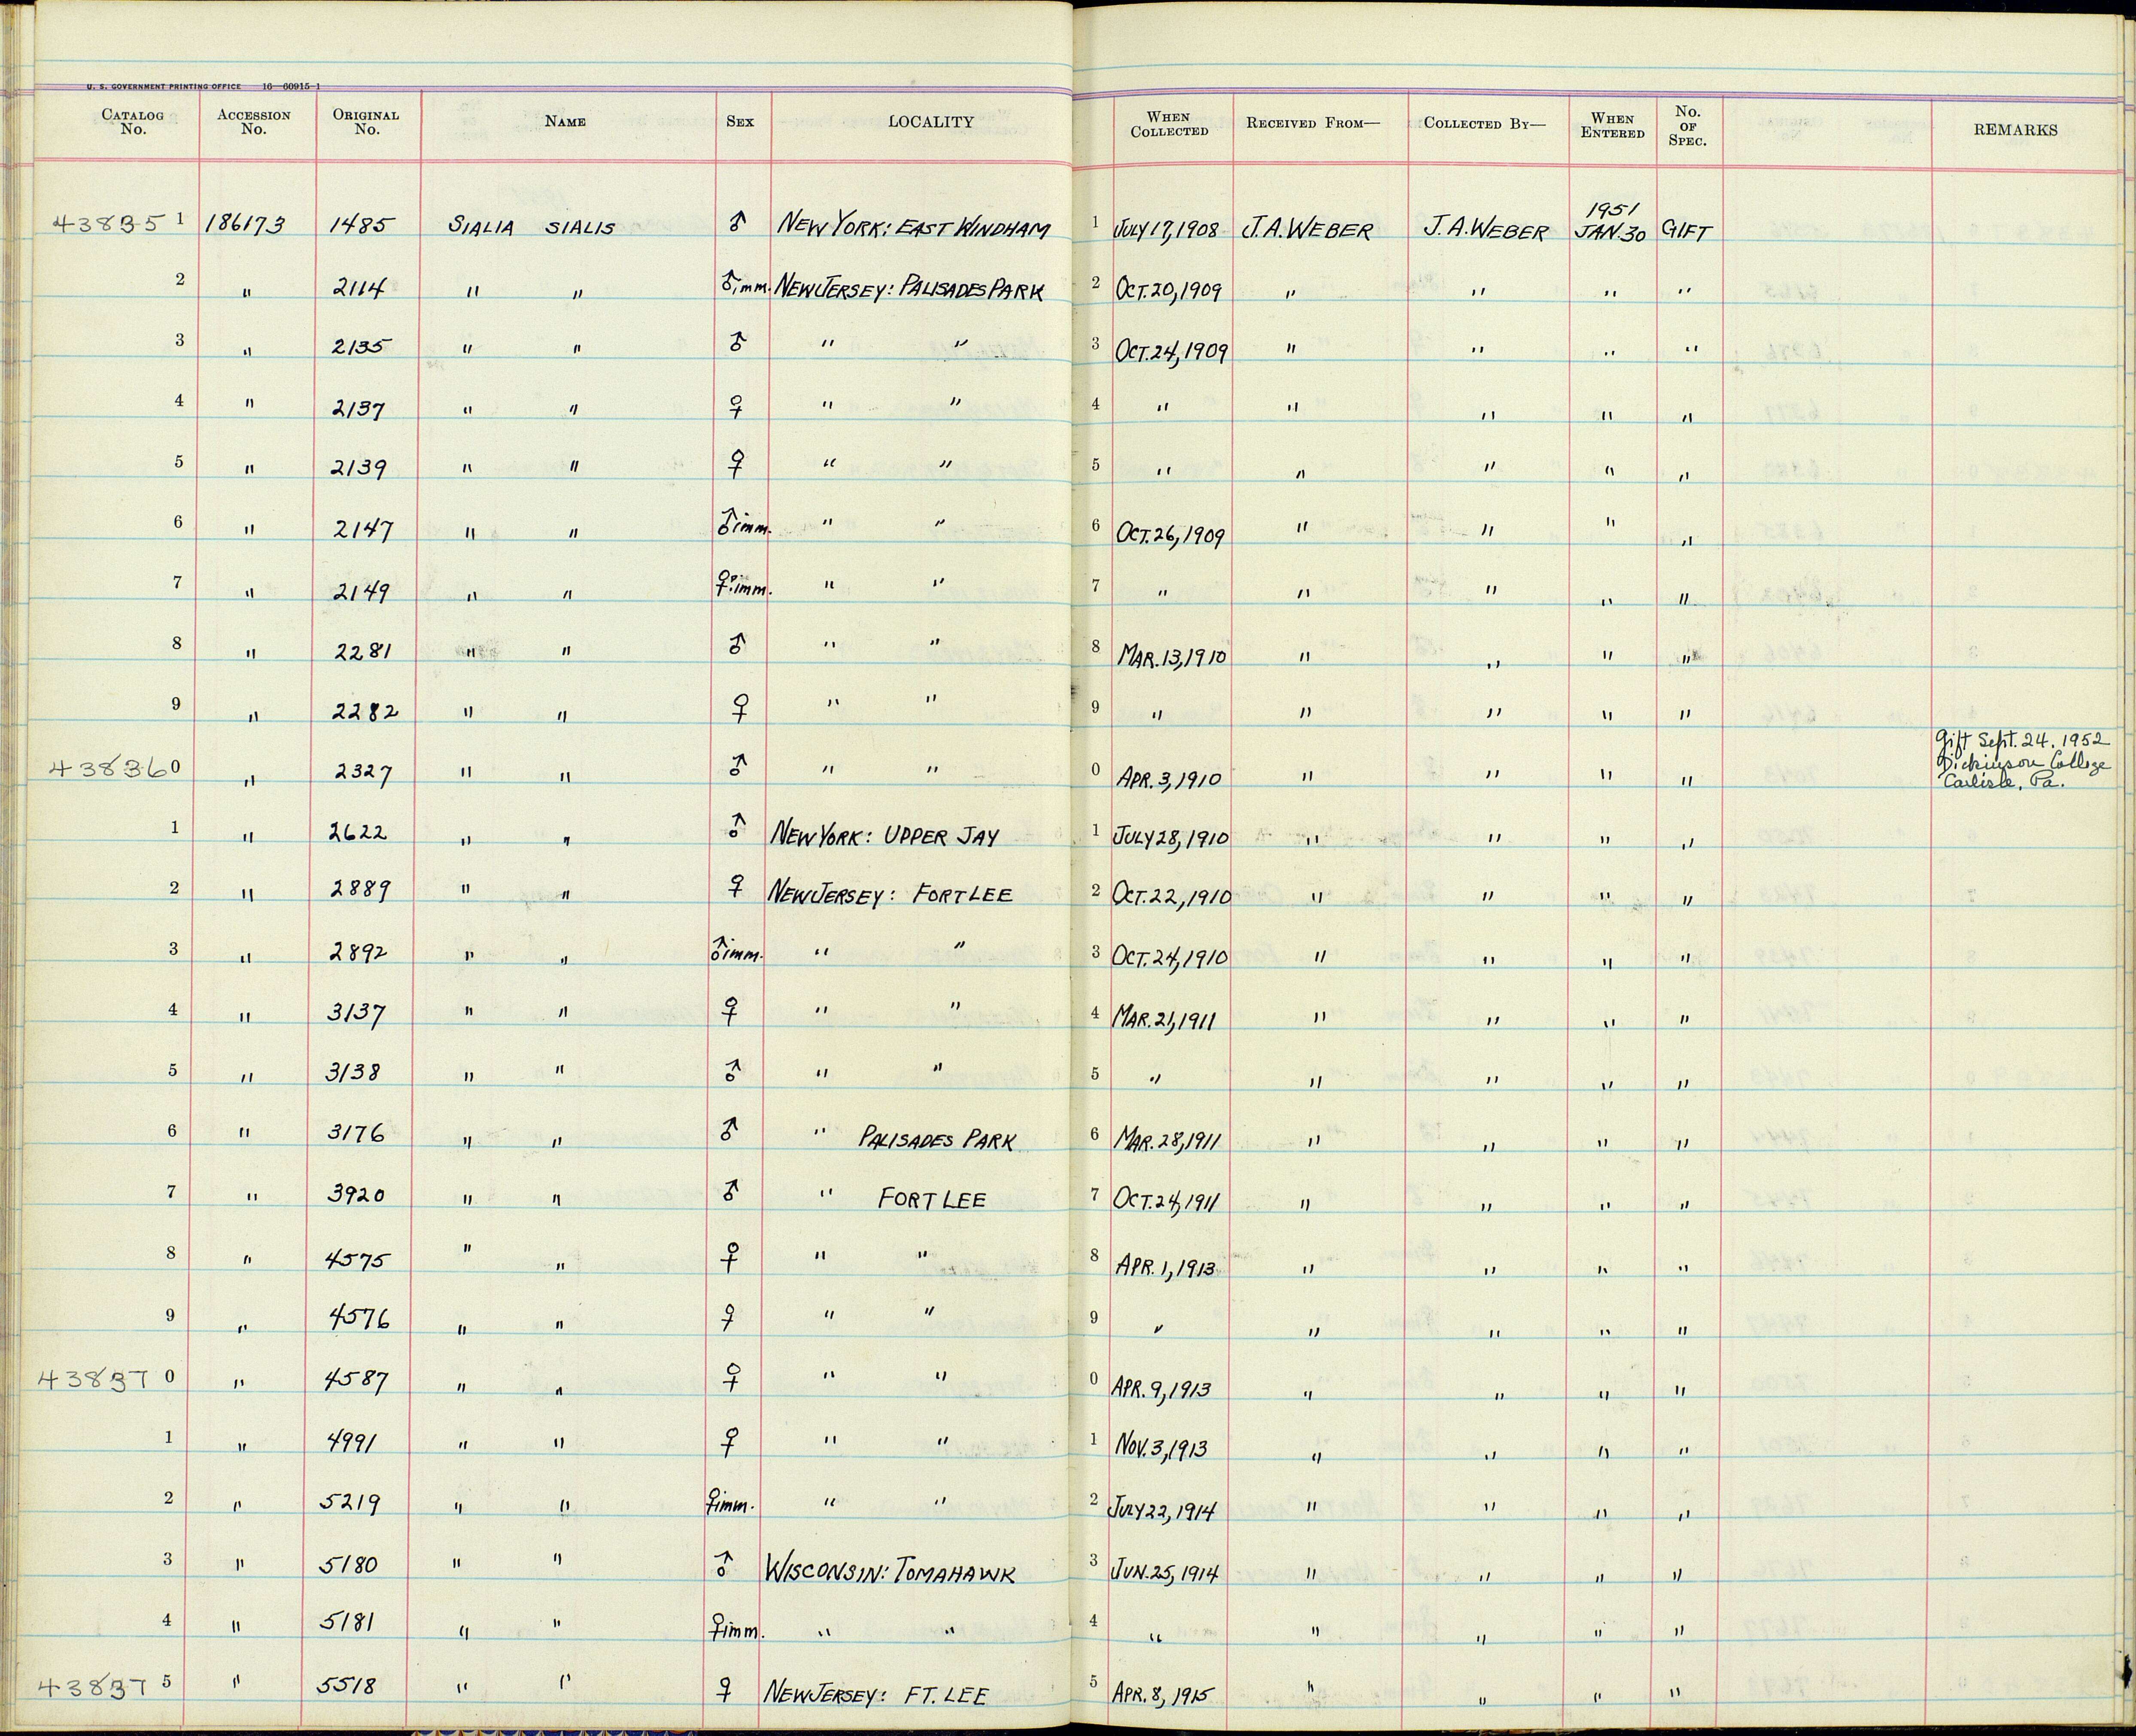 U. S. GOVERNMENT PRINTING OFFICE 16—60915-1
CATALOG No. ACCESSION No. ORIGINAL No. NAME SEX LOCALITY WHEN COLLECTED RECEIVED FROM— COLLECTED BY— WHEN ENTERED No. OF SPEC. REMARKS
43835 1 186173 1485 SIALIA SIALIS ♂ NEW YORK: EAST WINDHAM 1 JULY 17, 1908 J.A. WEBER J.A. WEBER 1951 JAN. 30 GIFT
2 " 2114 " " ♂ imm. NEW JERSEY: PALISADES PARK 2 OCT. 20, 1909 " " " "
3 " 2135 " " ♂ " " 3 OCT. 24, 1909 " " " "
4 " 2137 " " ♀ " " 4 " " " " "
5 " 2139 " " ♀ " " 5 " " " " "
6 " 2147 " " ♂ imm. " " 6 OCT. 26, 1909 " " " "
7 " 2149 " " ♀? imm. " " 7 " " " " "
8 " 2281 " " ♂ " " 8 MAR. 13, 1910 " " " "
9 " 2282 " " ♀ " " 9 " " " " "
43836 0 " 2327 " " ♂ " " 0 APR. 3, 1910 " " " " Gift Sept. 24. 1952
Dickinson College
Carlisle, Pa.
1 " 2622 " " ♂ NEW YORK: UPPER JAY 1 JULY 28, 1910 " " " "
2 " 2889 " " ♀ NEW JERSEY: FORT LEE 2 OCT. 22, 1910 " " " "
3 " 2892 " " ♂ imm. " " 3 OCT. 24, 1910 " " " "
4 " 3137 " " ♀ " " 4 MAR. 21, 1911 " " " "
5 " 3138 " " ♂ " " 5 " " " " "
6 " 3176 " " ♂ " PALISADES PARK 6 MAR. 28, 1911 " " " "
7 " 3920 " " ♂ " FORT LEE 7 OCT. 24, 1911 " " " "
8 " 4575 " " ♀ " " 8 APR. 1, 1913 " " " "
9 " 4576 " " ♀ " " 9 " " " " "
43837 0 " 4587 " " ♀ " " 0 APR. 9, 1913 " " " "
1 " 4991 " " ♀ " " 1 NOV. 3, 1913 " " " "
2 " 5219 " " ♀ imm. " " 2 JULY 22, 1914 " " " "
3 " 5180 " " ♂ WISCONSIN: TOMAHAWK 3 JUN. 25, 1914 " " " "
4 " 5181 " " ♀ imm. " " 4 " " " " "
43837 5 " 5518 " " ♀ NEW JERSEY: FT. LEE 5 APR. 8, 1915 " " " "